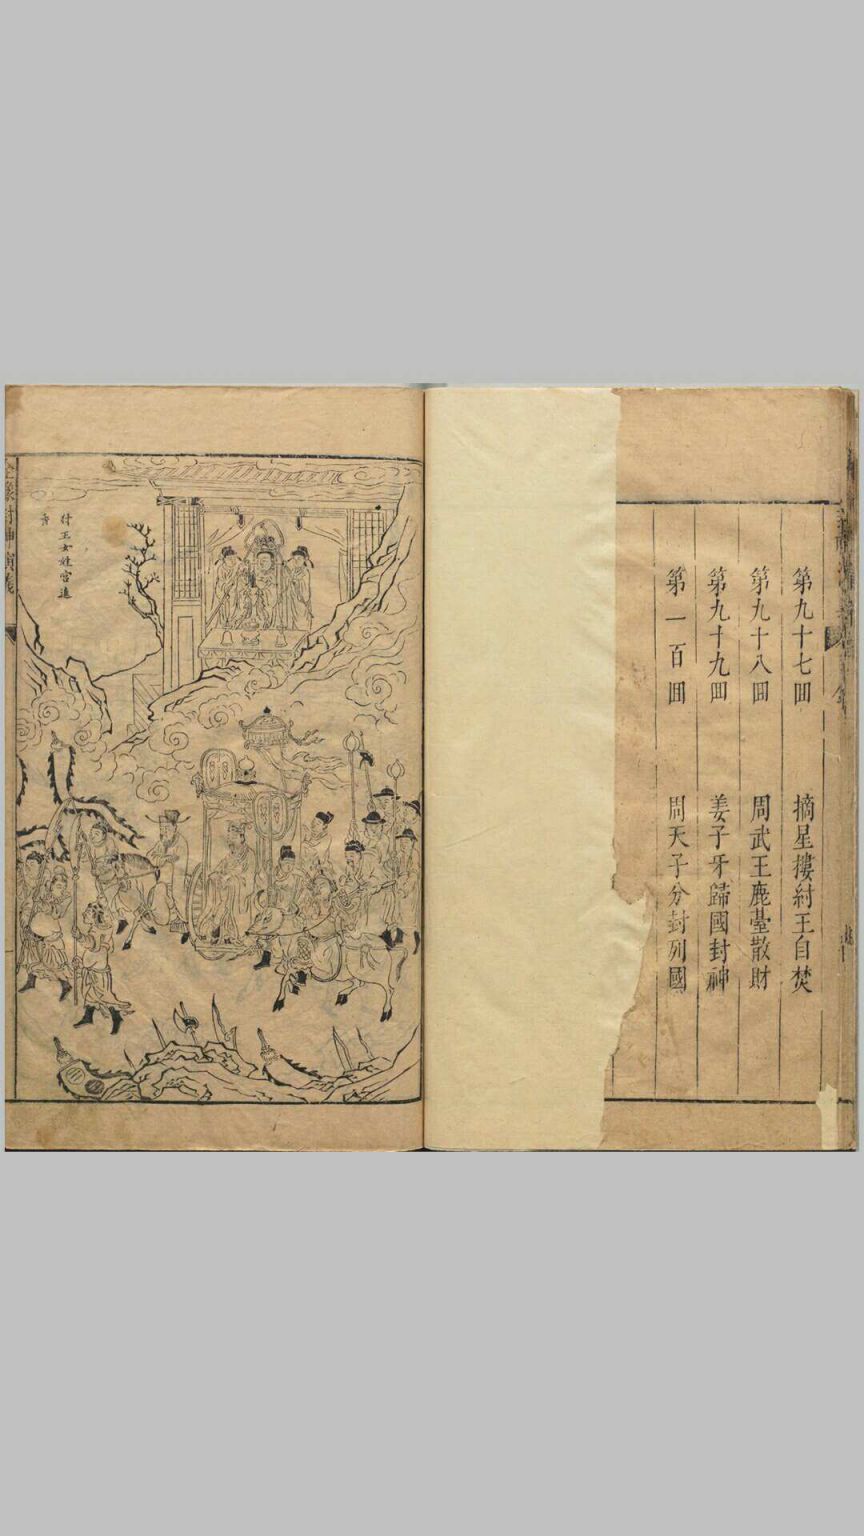 第九十七囬 摘星摟紂王自焚
第九十八囬 周武王鹿臺散財
第九十九囬 姜子牙歸國封神
第一百囬 周天子分封列國
紂王女媧宮進
香
全像封神演義